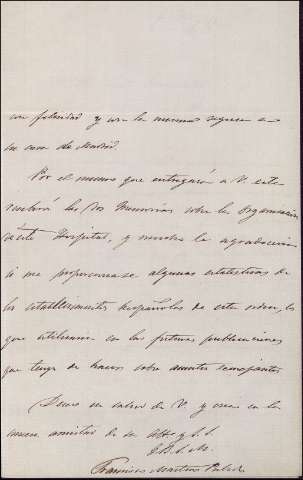 con felicidad y con la misma regrese a
su casa de Madrid.
Por el mismo que entregará a V. esta
recibirá las dos Memorias sobre la organización
de este Hospital, y mucho le agradeceria
si me proporcionase algunas estadísticas de
los establecimientos españoles de este orden, las
que utilizaria en las futuras publicaciones
que tengo de hacer sobre asuntos semejantes.
Deseo su salud de V. y
amistad de su afmo y S. S.
Q. B. S. M.
Francisco Martinez